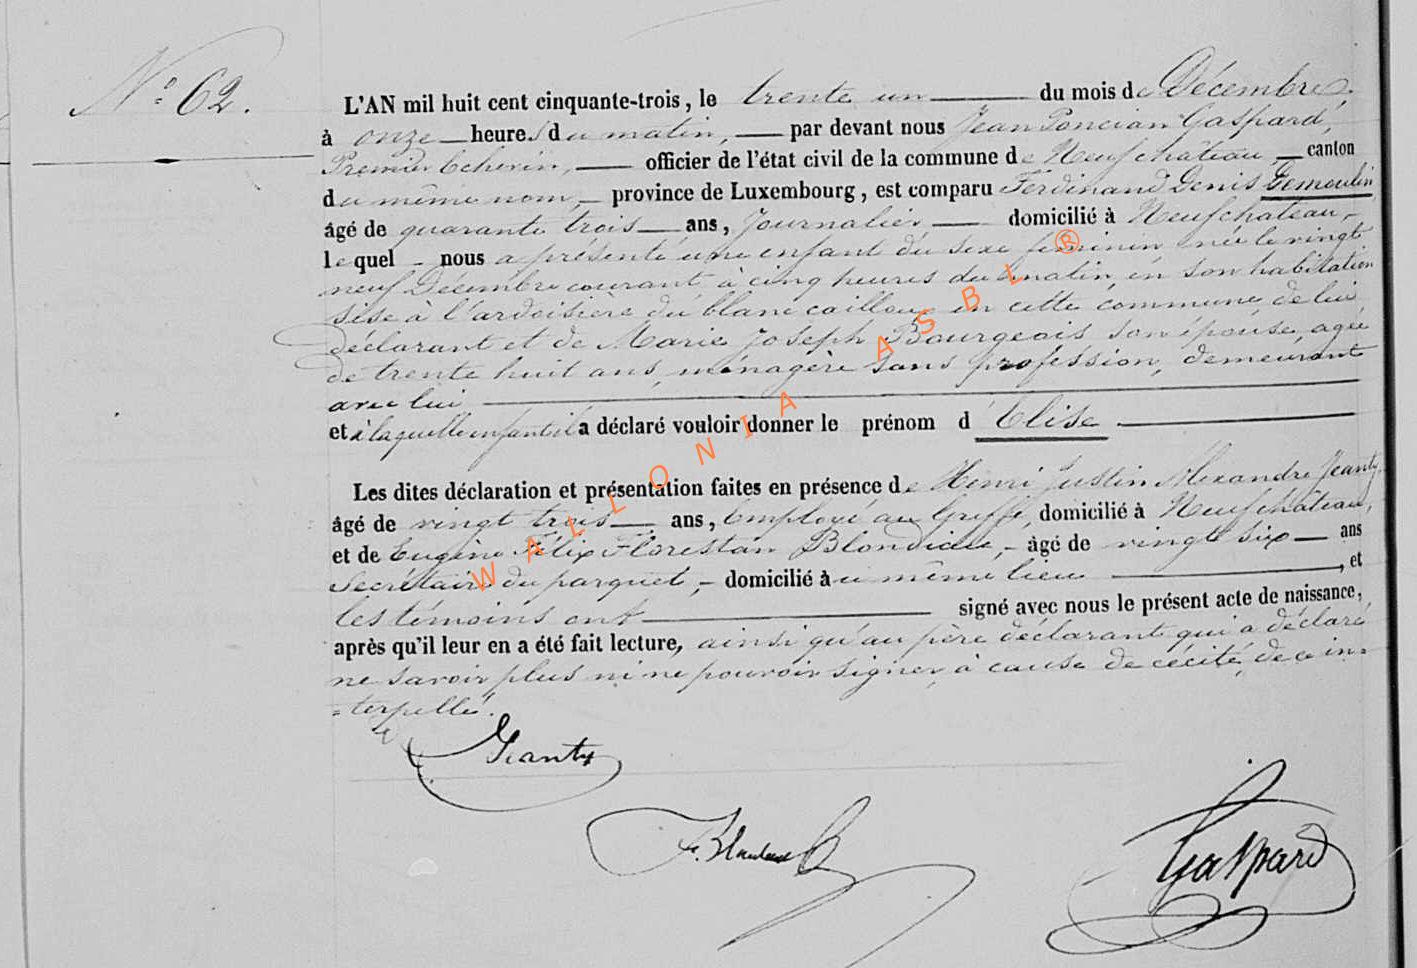 N° 62.
L'AN mil huit cent cinquante-trois, le trente un du mois de Décembre
à onze heures du matin, par devant nous Jean Poncian Gaspard,
Premier Echevin, officier de l'état civil de la commune de Neufchâteau, canton
du même nom, province de Luxembourg, est comparu Ferdinand Denis Demoulin
âgé de quarante trois ans, Journalier domicilié à Neufchateau,
lequel nous a présenté une enfant du sexe féminin née le vingt
neuf Décembre courant à cinq heures du matin, en son habitation
sise à l'ardoisière du blanc caillou en cette commune, de lui
déclarant et de Marie Joseph Bourgeois son épouse, agée
de trente huit ans, ménagère sans profession, demeurant
avec lui
et à laquelle enfant il a déclaré vouloir donner le prénom d'Elise
Les dites déclaration et présentation faites en présence de Henri Justin Alexandre Jeanty
âgé de vingt trois ans, Employé au Greffe, domicilié à Neufchâteau,
et de Eugène Félix Florestan Blondiau, âgé de vingt six ans
Secrétaire du parquet, domicilié au même lieu, et
les témoins ont signé avec nous le présent acte de naissance,
après qu'il leur en a été fait lecture, ainsi qu'au père déclarant qui a déclaré
ne savoir plus ni ne pouvoir signer, à cause de cécité, de ce in=
=terpellé.
Jeanty
F. Blondiau
Gaspard
WALLONIA ASBL ®